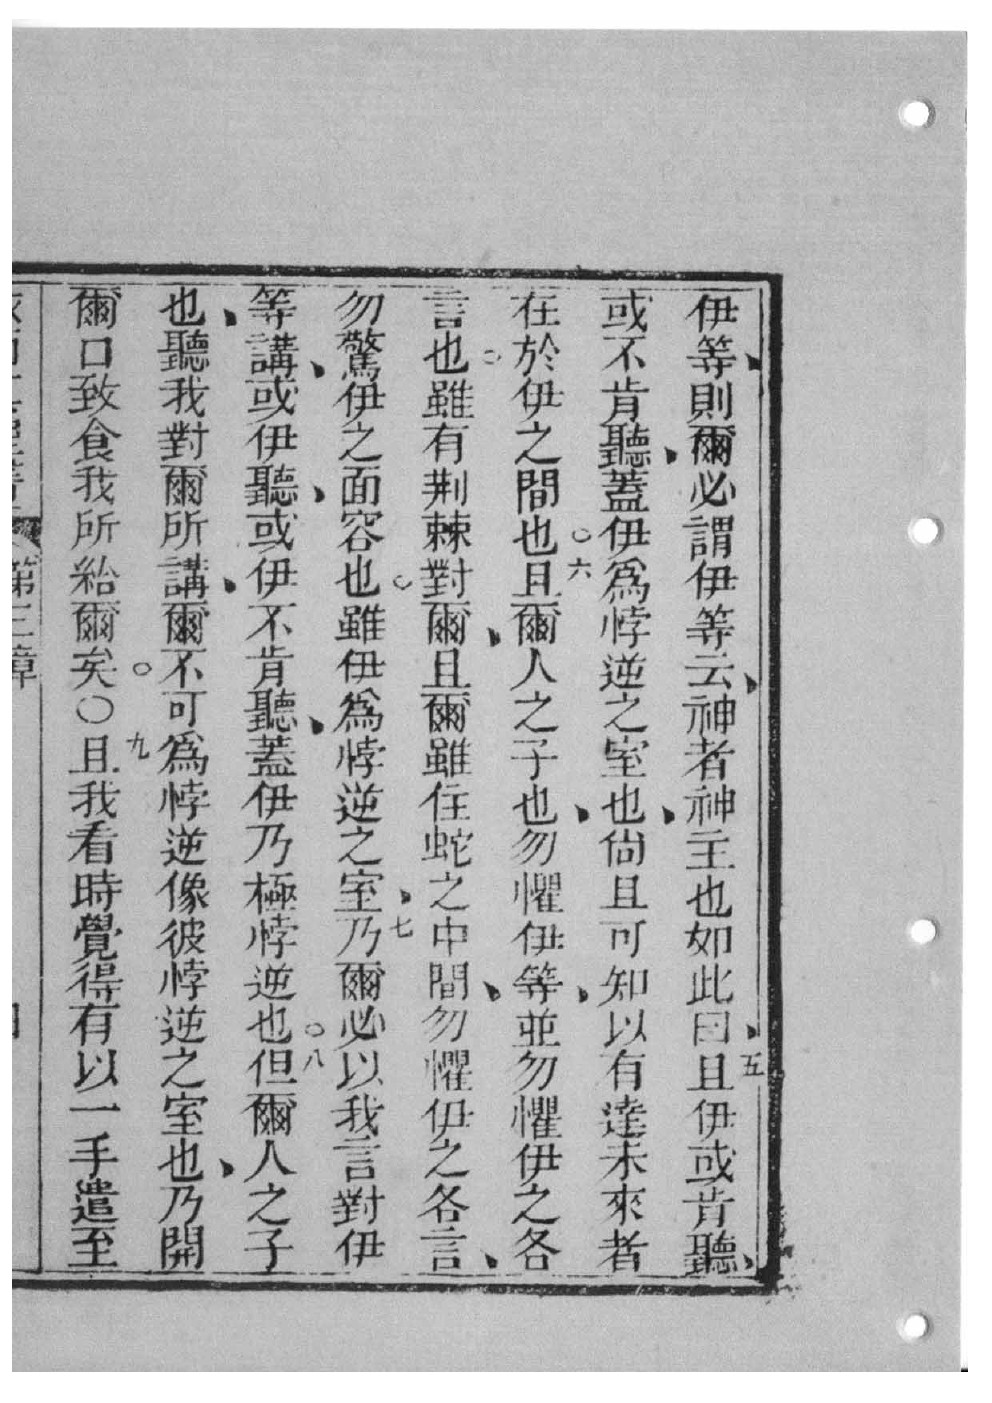 伊等、則爾必謂伊等云、神者神主也如此曰、五且伊或肯聽、
或不肯聽、蓋伊爲悖逆之室也、尙且可知以有達未來者
在於伊之間也。六且爾人之子也、勿懼伊等、並勿懼伊之各
言也。雖有荆棘對爾、且爾雖住蛇之中間、勿懼伊之各言、
勿驚伊之面容也。雖伊爲悖逆之室、七乃爾必以我言對伊
等講、或伊聽、或伊不肯聽、蓋伊乃極悖逆也。八但爾人之子
也、聽我對爾所講、爾不可爲悖逆像彼悖逆之室也、乃開
爾口致食我所給爾矣。○九且我看時覺得有以一手遣至
第三章